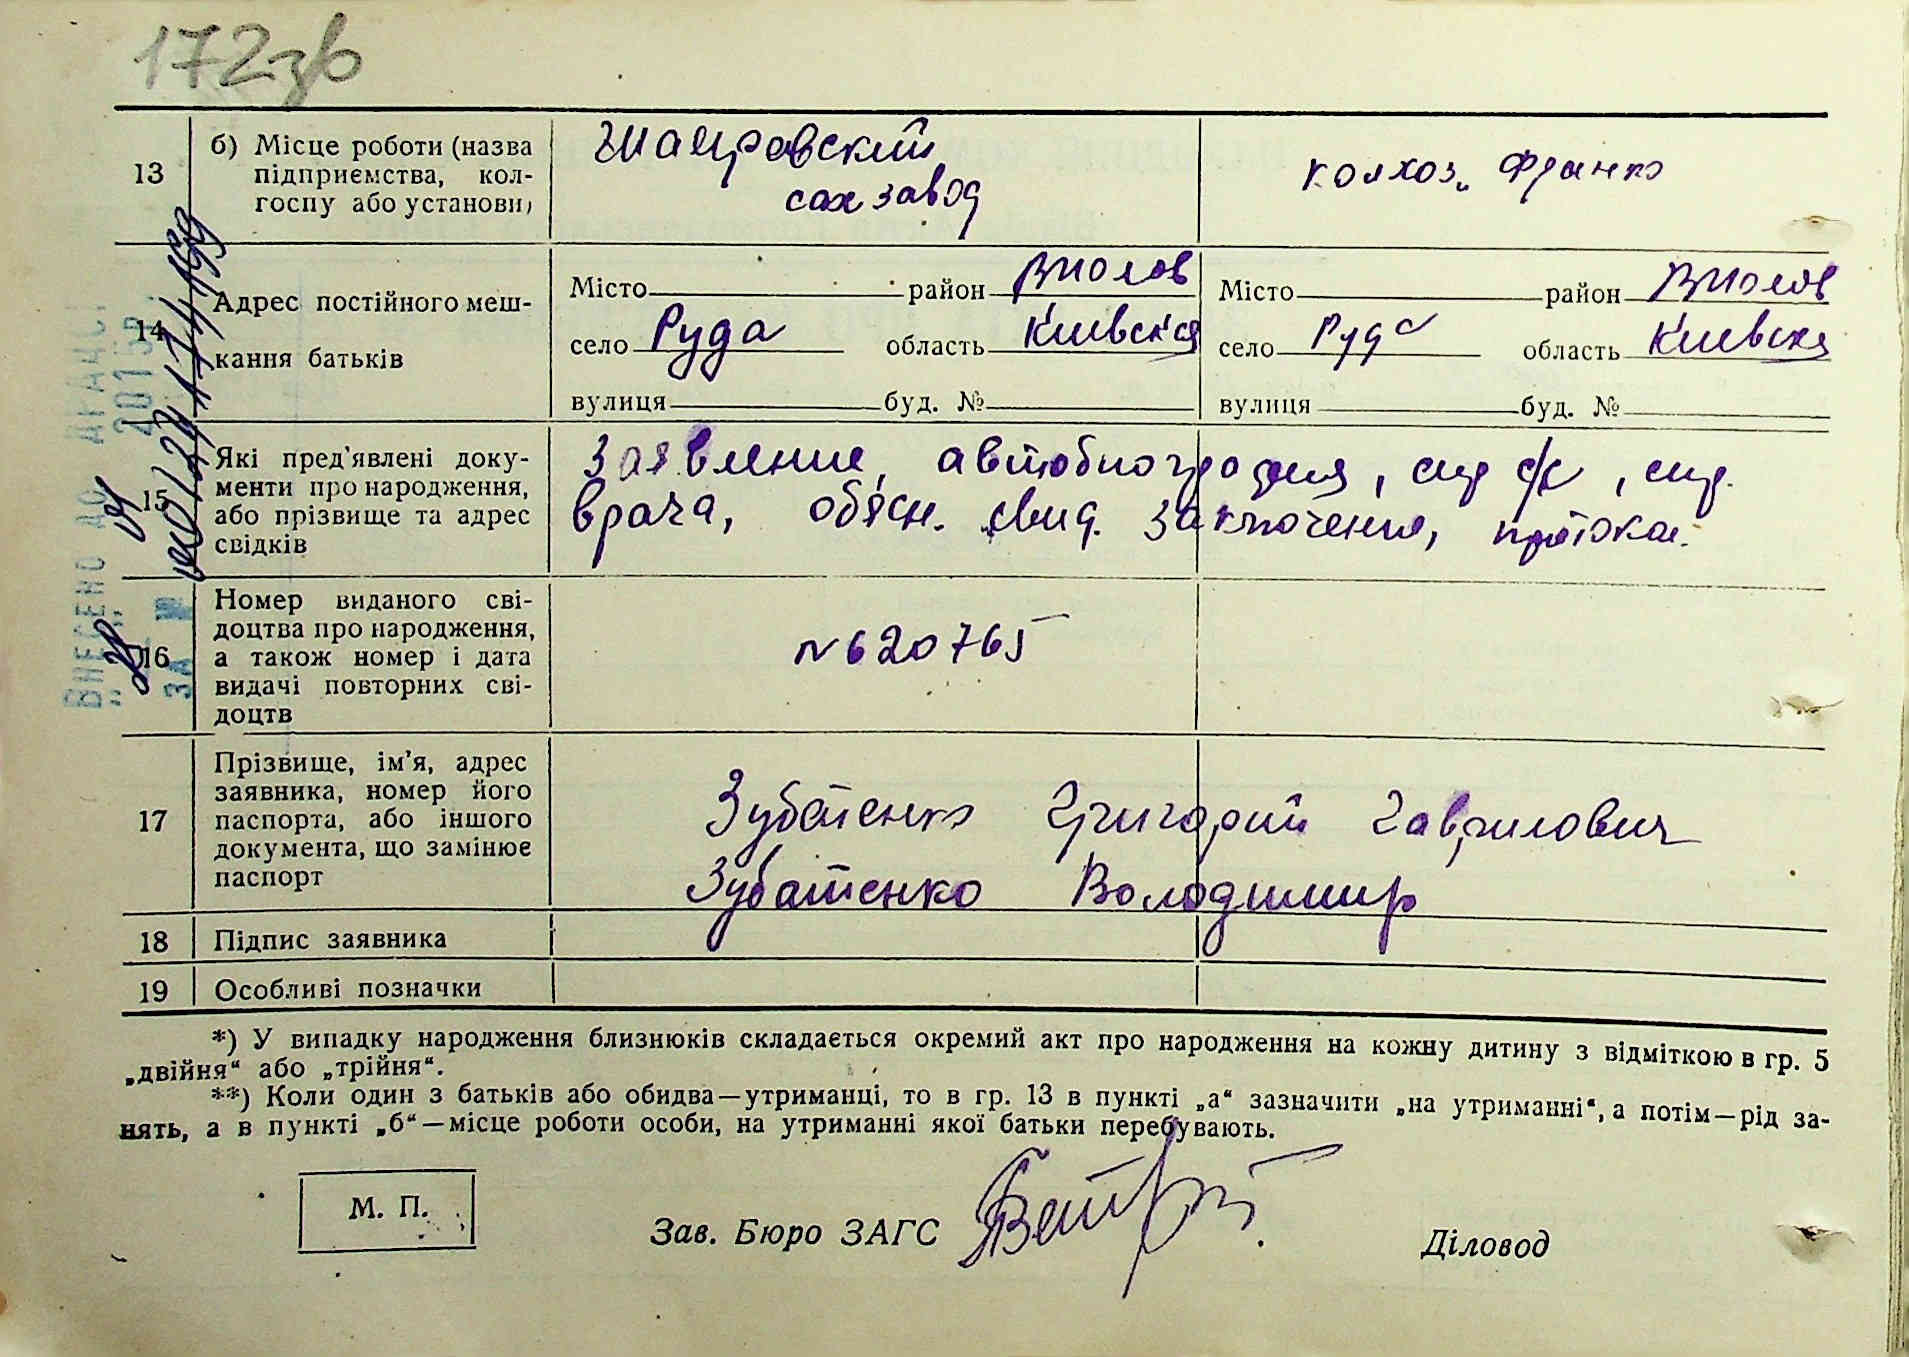 172зв
13
б) Місце роботи (назва
підприємства, кол-
госпу або установи)
сах завод
колхоз. Франко
14
Адрес постійного меш-
кання батьків
Місто район
село Руда область Киевская
вулиця буд. №
Місто район
село Руда область Киевская
вулиця буд. №
15
Які пред'явлені доку-
менти про народження,
або прізвище та адрес
свідків
Заявление, автобиография,
врача, обясн. свид. заключения, протокол.
16
Номер виданого сві-
доцтва про народження,
а також номер і дата
видачі повторних сві-
доцтв
N 620765
17
Прізвище, ім'я, адрес
заявника, номер його
паспорта, або іншого
документа, що замінює
паспорт
Зубатенко Григорий Гаврилович
Зубатенко Володимир
18
Підпис заявника
19
Особливі позначки
*) У випадку народження близнюків складається окремий акт про народження на кожну дитину з відміткою в гр. 5
„двійня“ або „трійня“.
**) Коли один з батьків або обидва—утриманці, то в гр. 13 в пункті „а“ зазначити „на утриманні“, а потім—рід за-
нять, а в пункті „б“—місце роботи особи, на утриманні якої батьки перебувають.
М. П.
Зав. Бюро ЗАГС
Діловод
ВНЕСЕНО ДО ДРАЦС
2015р.
ЗА №